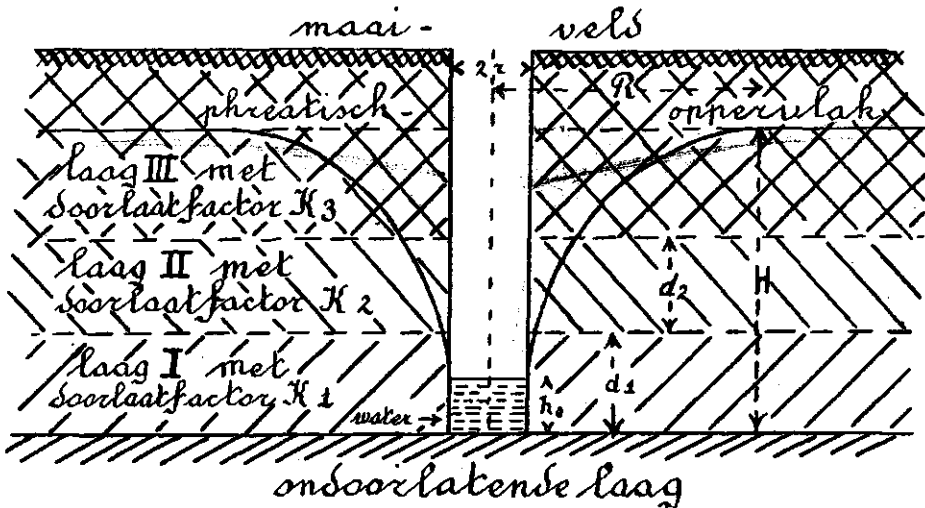 maai- veld
2r
R
phreatisch- oppervlak
laag III met
doorlaatfactor K3
laag II met
doorlaatfactor K2
d2
H
laag I met
doorlaatfactor K1
d1
h₀
water
ondoorlatende laag